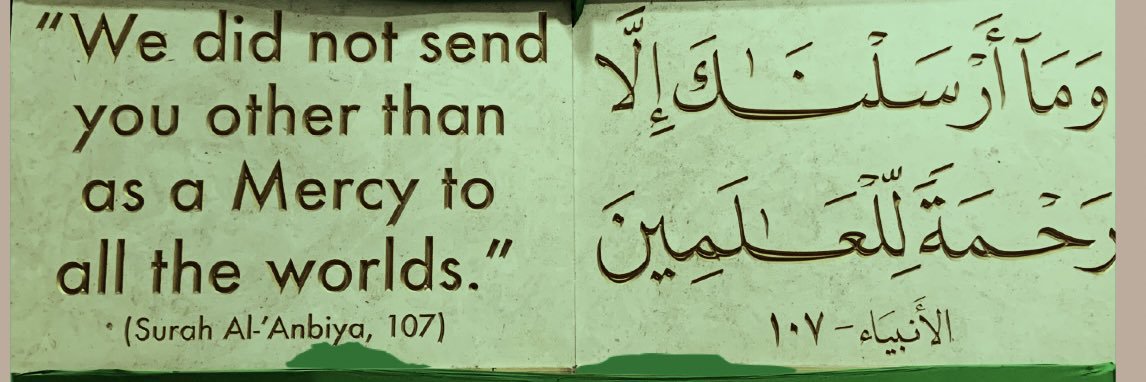 “We did not send
you other than
as a Mercy to
all the worlds.”
(Surah Al-’Anbiya, 107)
وَمَآ أَرْسَلْنَـٰكَ إِلَّا
رَحْمَةً لِّلْعَـٰلَمِينَ
الأَنبيَاء - ١٠٧